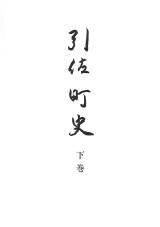 引佐町史
下巻